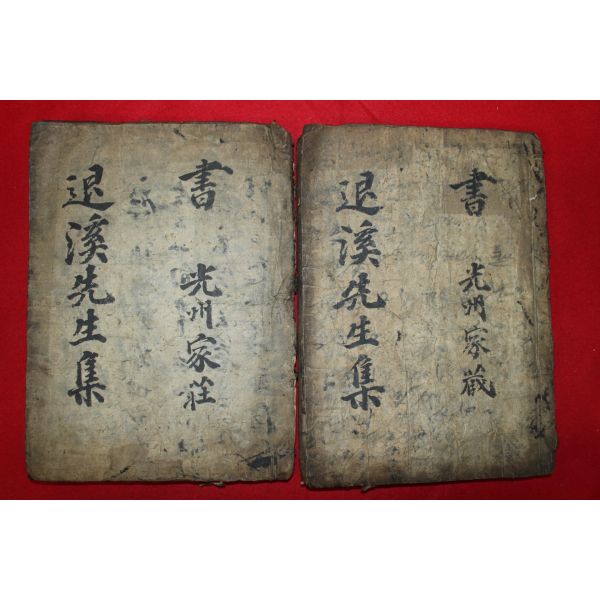 書
光州家莊
退溪先生集
書
光州家蔵
退溪先生集